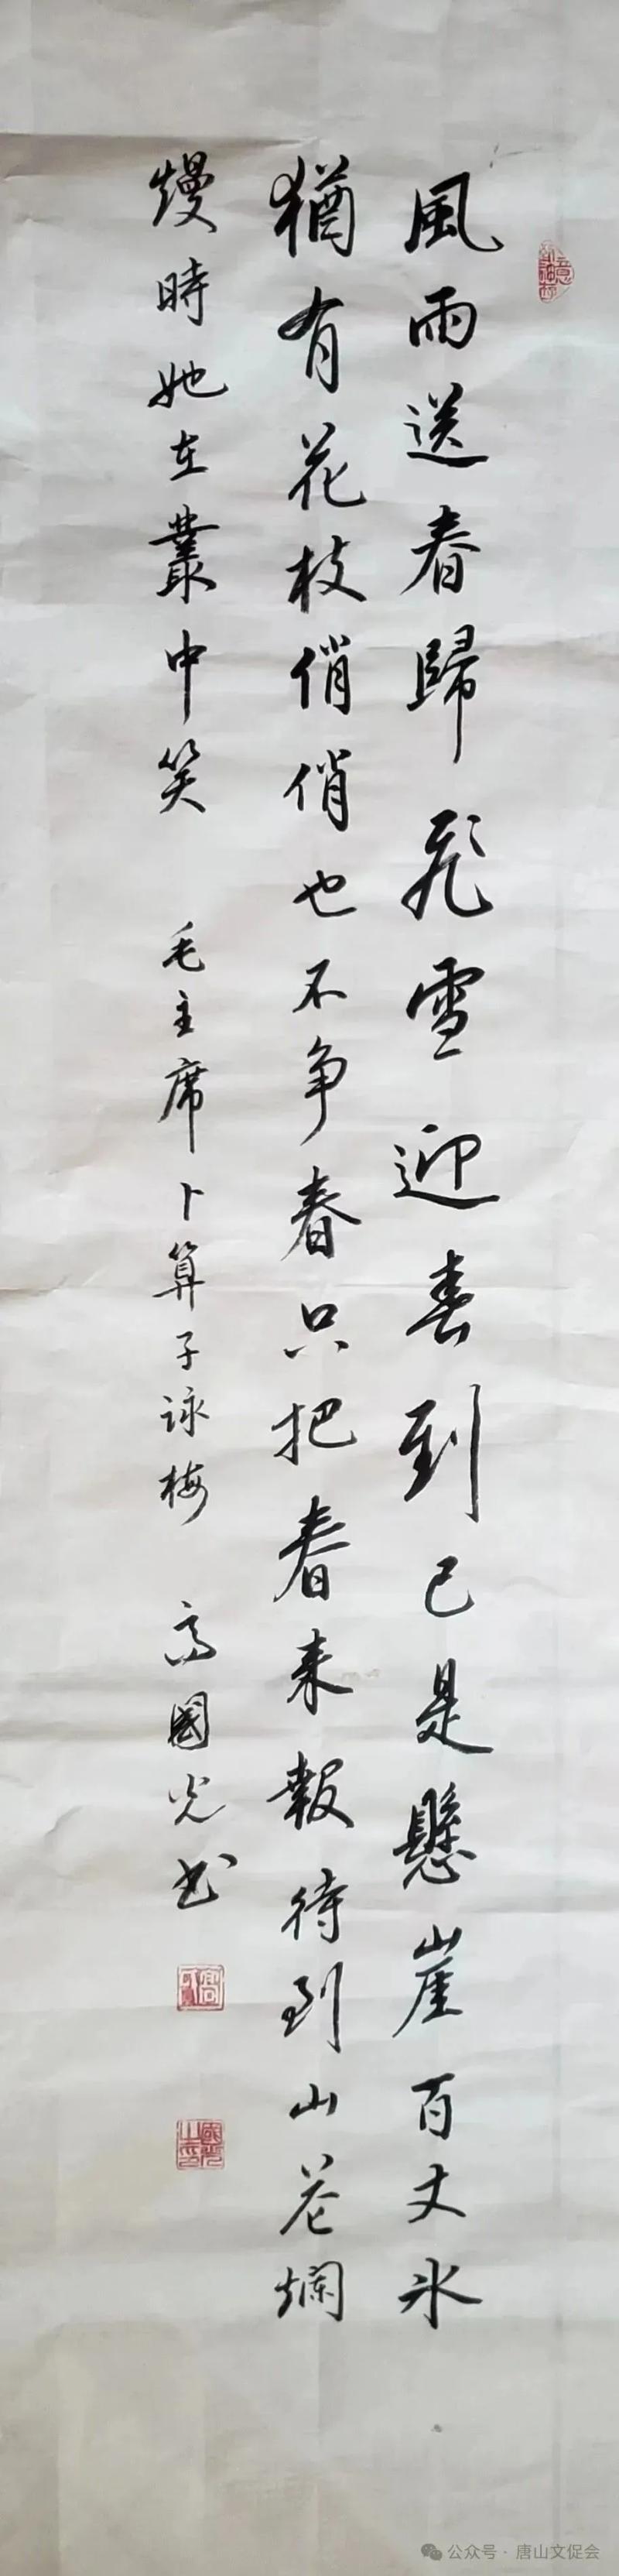 風雨送春歸飛雪迎春到已是懸崖百丈冰
猶有花枝俏俏也不争春只把春來報待到山花爛
熳時她在叢中笑 毛主席卜算子詠梅 高國光书
國光之印
公众号·唐山文促会